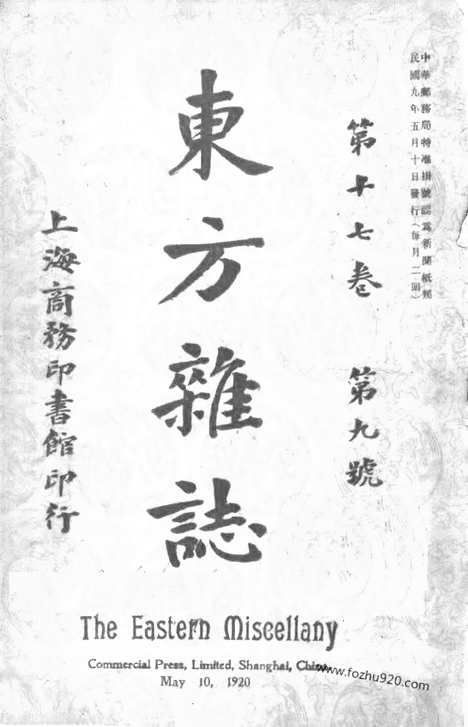 中華郵務局特准掛號認爲新聞紙類
民國九年五月十日發行（每月二回）
第十七卷 第九號
東方雜誌
上海商務印書館印行
The Eastern Miscellany
Commercial Press, Limited, Shanghai, China
May 10, 1920
www.fozhu920.com